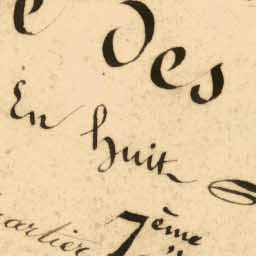 e des
En huit
quartier 7ème